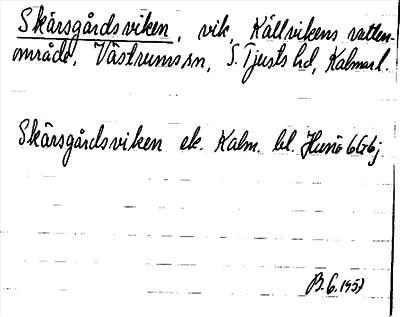 Skärsgårdsviken, vik, Källvikens vatten-
område, Västrums sn, S. Tjusts hd, Kalmar l.
Skärsgårdsviken ek. Kalm. bl. Husö 6G6j
B. 6. 1957